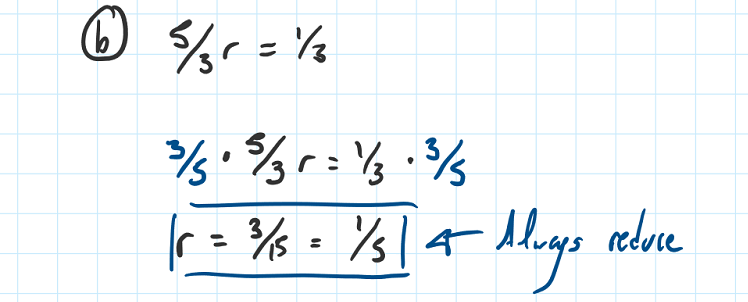 b 5/3 r = 1/3
3/5 · 5/3 r = 1/3 · 3/5
r = 3/15 = 1/5 ← Always reduce